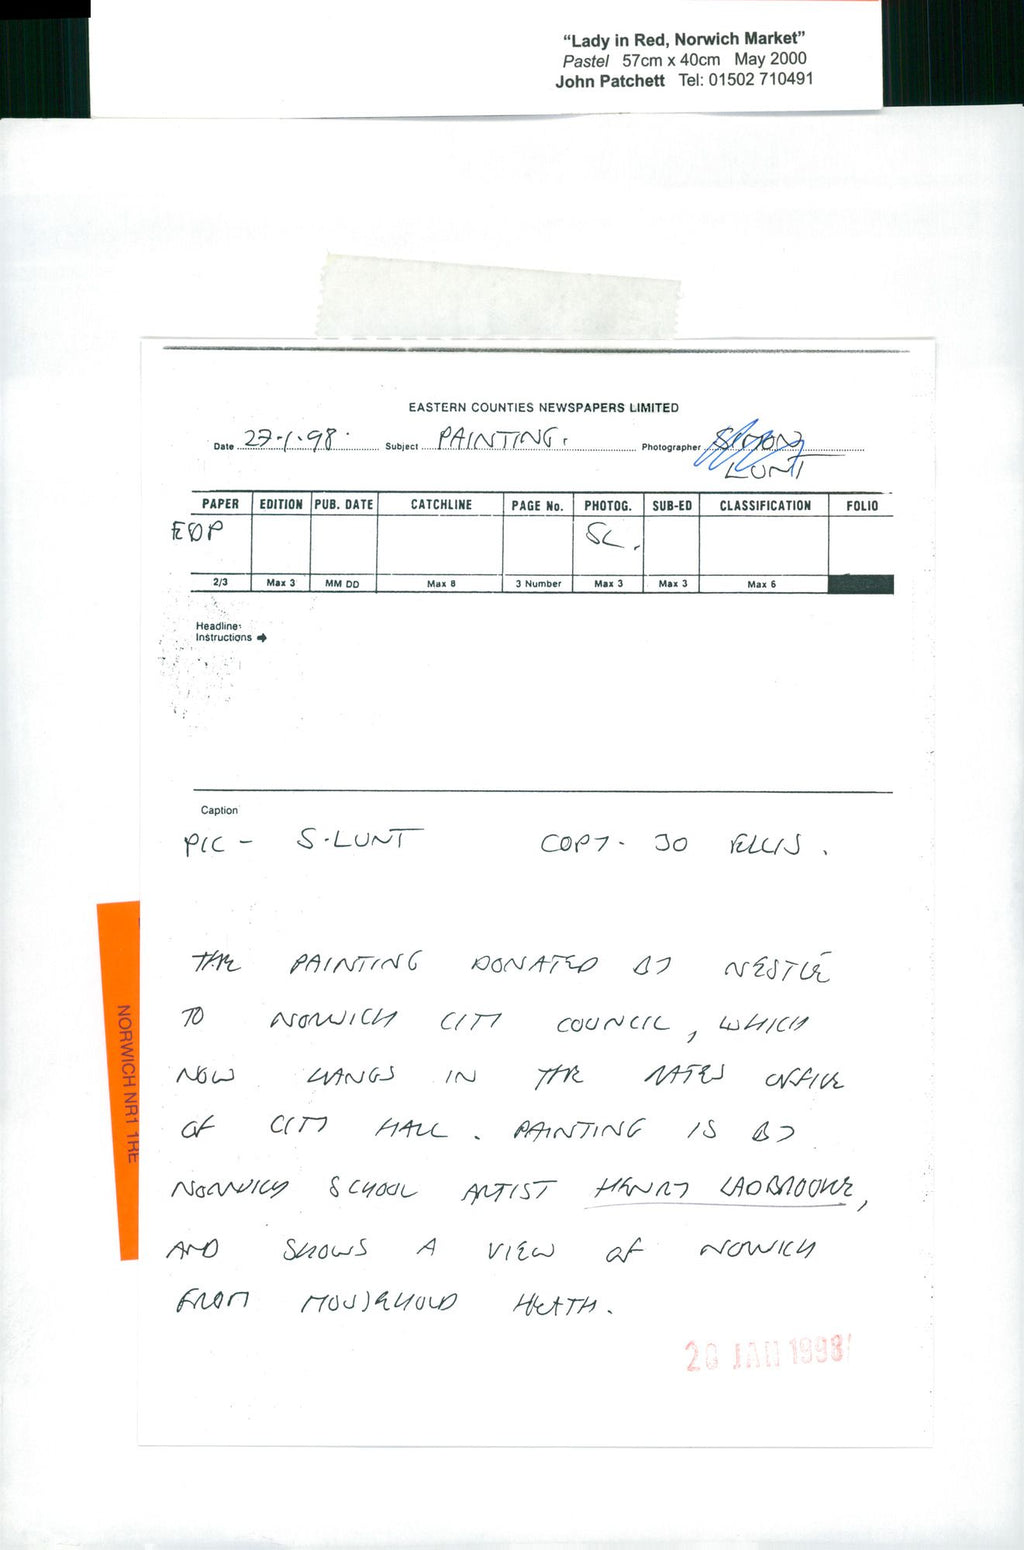 “Lady in Red, Norwich Market”
Pastel 57cm x 40cm May 2000
John Patchett Tel: 01502 710491
EASTERN COUNTIES NEWSPAPERS LIMITED
Date 27.1.98. Subject PAINTING. Photographer SIMON
LUNT
PAPER EDITION PUB. DATE CATCHLINE PAGE No. PHOTOG. SUB-ED CLASSIFICATION FOLIO
EDP SL.
2/3 Max 3 MM DD Max 8 3 Number Max 3 Max 3 Max 6
Headline:
Instructions →
Caption
PIC - S. LUNT COPY - JO ELLIS.
THE PAINTING DONATED BY NESTLÉ
TO NORWICH CITY COUNCIL, WHICH
NOW HANGS IN THE RATES OFFICE
OF CITY HALL. PAINTING IS BY
NORWICH SCHOOL ARTIST HENRY LADBROOKE,
AND SHOWS A VIEW OF NORWICH
FROM MOUSEHOLD HEATH.
28 JAN 1998
NORWICH NR1 1RE